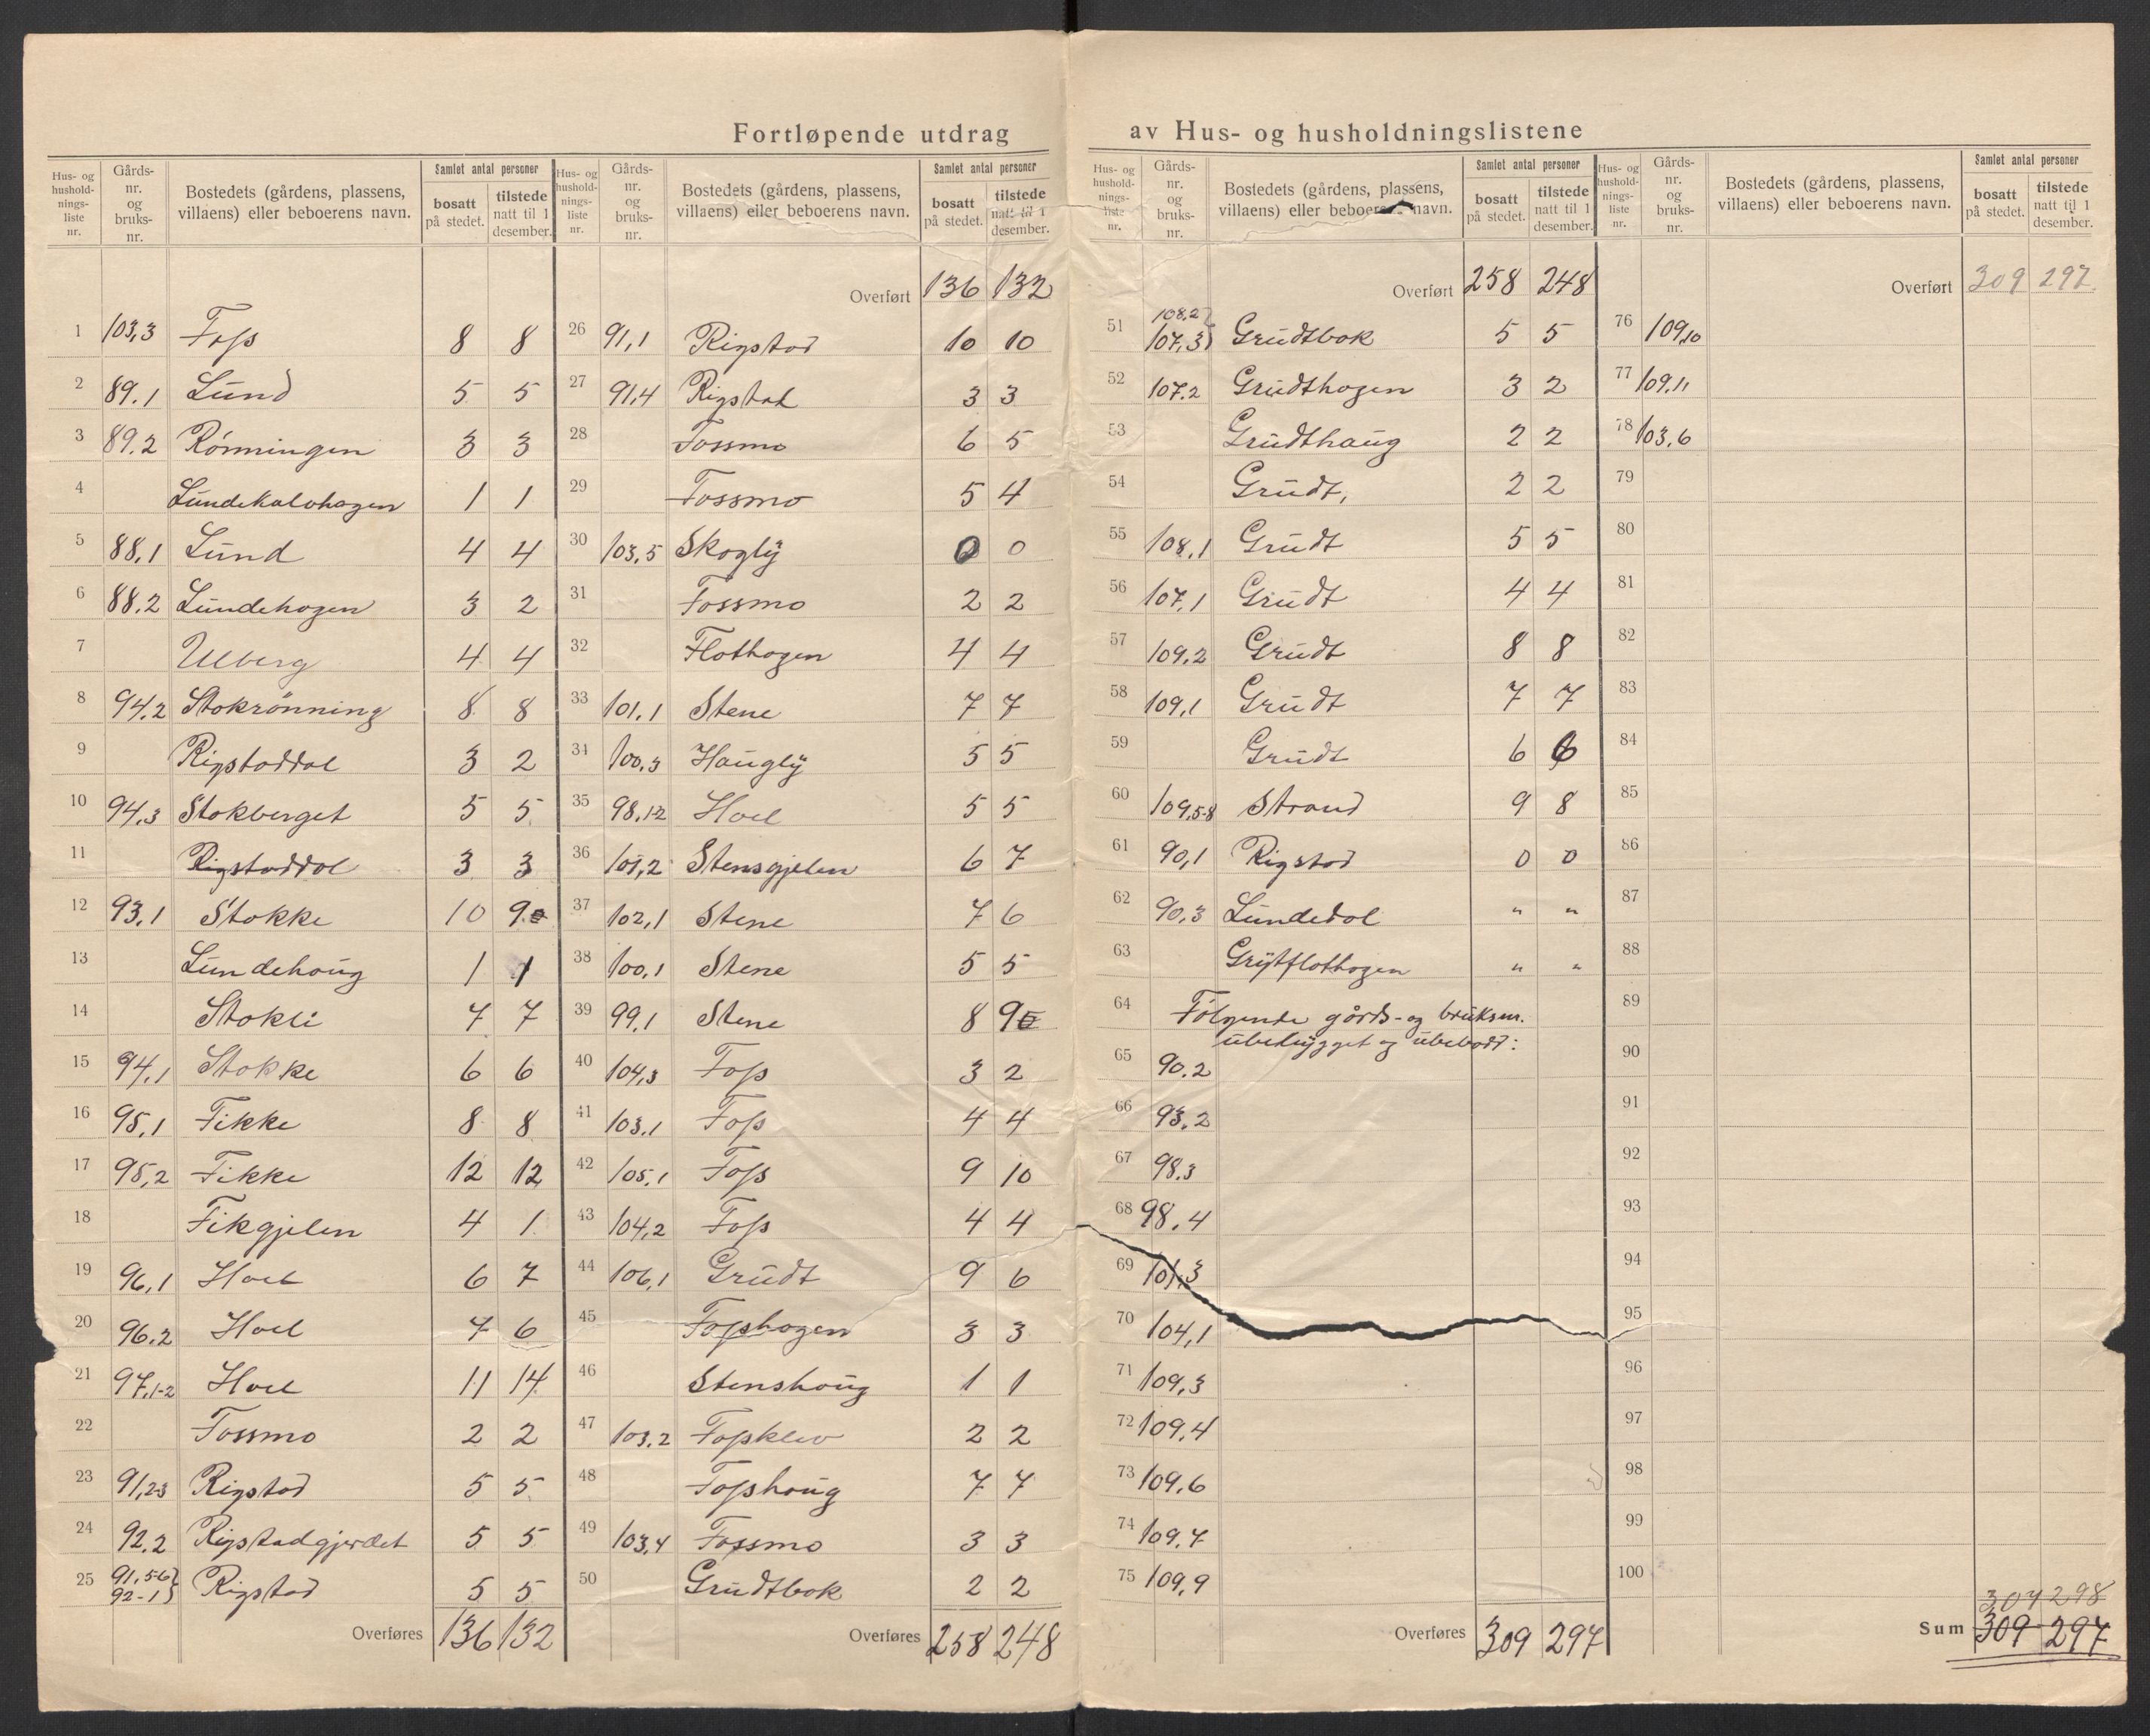 Fortløpende utdrag av Hus- og husholdningslistene
Hus- og hushold- nings- liste nr. | Gårds- nr. og bruks- nr. | Bostedets (gårdens, plassens, villaens) eller beboerens navn. | Samlet antal personer | bosatt på stedet. | tilstede natt til 1 desember.
1 103,3 Foss 8 8
2 89.1 Lund 5 5
3 89.2 Rønningen 3 3
4 Lundekalvhagen 1 1
5 88,1 Lund 4 4
6 88.2 Lundehagen 3 2
7 Ulberg 4 4
8 94.2 Stokrønning 8 8
9 Rigstaddal 3 2
10 94.3 Stokberget 5 5
11 Rigstaddal 3 3
12 93.1 Stokke 10 9
13 Lundehaug 1 1
14 Stokli 7 7
15 94.1 Stokke 6 6
16 95,1 Fikke 8 8
17 95,2 Fikke 12 12
18 Fikgjelen 4 1
19 96,1 Hoel 6 7
20 96.2 Hoel 7 6
21 97,1-2 Hoel 11 14
22 Fossmo 2 2
23 91,2-3 Rigstad 5 5
24 92.2 Rigstadgjerdet 5 5
25 91,5-6} 92-1} Rigstad 5 5
Overføres 136 132
Hus- og hushold- nings- liste nr. | Gårds- nr. og bruks- nr. | Bostedets (gårdens, plassens, villaens) eller beboerens navn. | Samlet antal personer | bosatt på stedet. | tilstede natt til 1 desember.
Overført 136 132
26 91,1 Rigstad 10 10
27 91,4 Rigstad 3 3
28 Fossmo 6 5
29 Fossmo 5 4
30 103,5 Skogly 0 0
31 Fossmo 2 2
32 Flothagen 4 4
33 101.1 Stene 7 7
34 100,3 Haugly 5 5
35 98,1-2 Hoel 5 5
36 101,2 Stensgjelen 6 7
37 102,1 Stene 7 6
38 100,1 Stene 5 5
39 99,1 Stene 8 9
40 104,3 Foss 3 2
41 103,1 Foss 4 4
42 105,1 Foss 9 10
43 104,2 Foss 4 4
44 106,1 Grudt 9 6
45 Fosshagen 3 3
46 Stenshaug 1 1
47 103,2 Fossklev 2 2
48 Fosshaug 7 7
49 103,4 Fossmo 3 3
50 Grudtbak 2 2
Overføres 258 248
Hus- og hushold- nings- liste nr. | Gårds- nr. og bruks- nr. | Bostedets (gårdens, plassens, villaens) eller beboerens navn. | Samlet antal personer | bosatt på stedet. | tilstede natt til 1 desember.
Overført 258 248
51 108.2} 107,3} Grudtbak 5 5
52 107.2 Grudthagen 3 2
53 Grudthaug 2 2
54 Grudt, 2 2
55 108,1 Grudt 5 5
56 107,1 Grudt 4 4
57 109.2 Grudt 8 8
58 109,1 Grudt 7 7
59 Grudt 6 6
60 109,5-8 Strand 9 8
61 90,1 Rigstad 0 0
62 90,3 Lundedal " "
63 Grytflothagen " "
64 Følgende gårds- og bruksnr.
ubebygget og ubebodd:
65 90.2
66 93.2
67 98.3
68 98.4
69 101.3
70 104,1
71 109,3
72 109,4
73 109.6
74 109.7
75 109,9
Overføres 309 297
Hus- og hushold- nings- liste nr. | Gårds- nr. og bruks- nr. | Bostedets (gårdens, plassens, villaens) eller beboerens navn. | Samlet antal personer | bosatt på stedet. | tilstede natt til 1 desember.
Overført 309 297
76 109,10
77 109,11
78 103,6
79
80
81
82
83
84
85
86
87
88
89
90
91
92
93
94
95
96
97
98
99
100
307 298
Sum 309 297